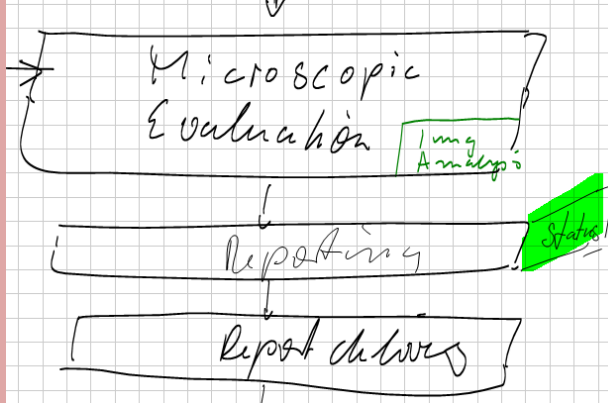 Microscopic
Evaluation
Img
Analysis
Reporting
Status
Report delivery